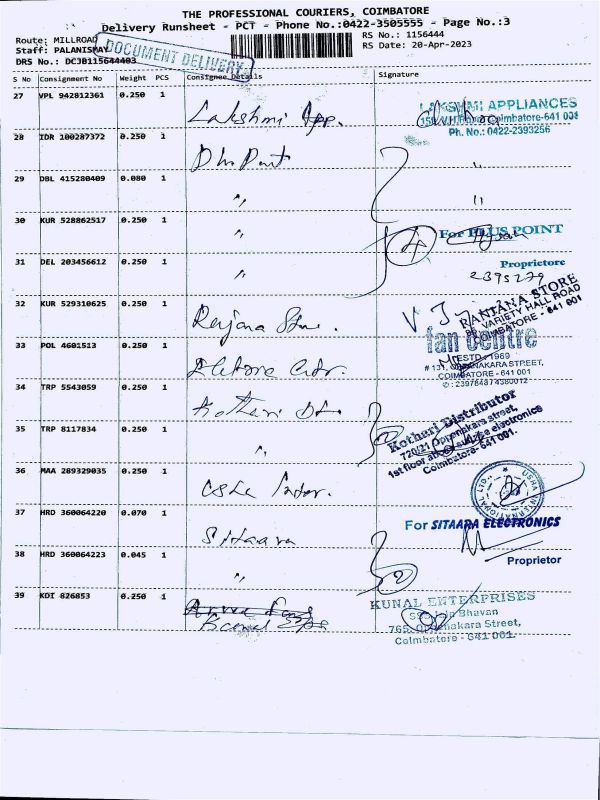 THE PROFESSIONAL COURIERS, COIMBATORE
Delivery Runsheet - PCT - Phone No.:0422-3505555 - Page No.:3
Route: MILLROAD
Staff: PALANISMAY
DRS No.: DCJB115644403
DOCUMENT DELIVERY
RS No.: 1156444
RS Date: 20-Apr-2023
S No Consignment No Weight PCS Consignee Details Signature
27 VPL 942812361 0.250 1 Lakshmi App.
LAKSHMI APPLIANCES
Coimbatore-641 001
Ph. No.: 0422-2393256
28 IDR 100287372 0.250 1
29 DBL 415280409 0.080 1 "
30 KUR 528862517 0.250 1 "
4
For PLUS POINT
Proprietore
2395279
31 DEL 203456612 0.250 1 "
32 KUR 529310625 0.250 1
RANJANA STORE
VARIETY HALL ROAD
COIMBATORE - 641 001
33 POL 4601513 0.250 1
fan centre
ESTD. 1969
# 131, OPPANAKARA STREET,
COIMBATORE - 641 001
34 TRP 5543059 0.250 1 Kothari
Kothari Distributor
720/21 Oppenakara street,
1st floor above electronics
Coimbatore- 641 001.
35 TRP 8117834 0.250 1 "
2
36 MAA 289329035 0.250 1
USHA INTERNATIONAL LTD.
37 HRD 360064220 0.070 1 Sitaara
For SITAARA ELECTRONICS
Proprietor
38 HRD 360064223 0.045 1 "
2
39 KDI 826853 0.250 1
KUNAL ENTERPRISES
Bhavan
765, Oppanakara Street,
Coimbatore - 641 001.